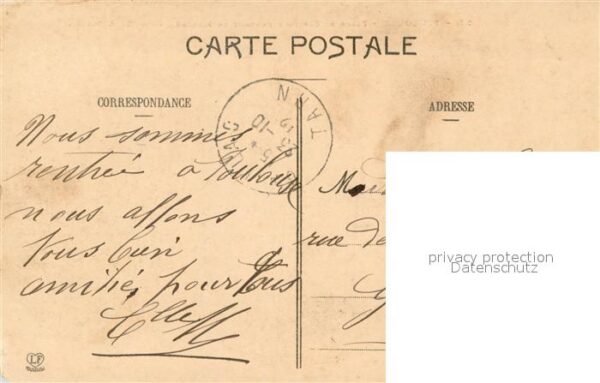 CARTE POSTALE
CORRESPONDANCE
ADRESSE
TARN
Nous sommes
rentrée à Toulouse
nous allons
tous bien
amitiés pour tous
rue de
privacy protection
Datenschutz